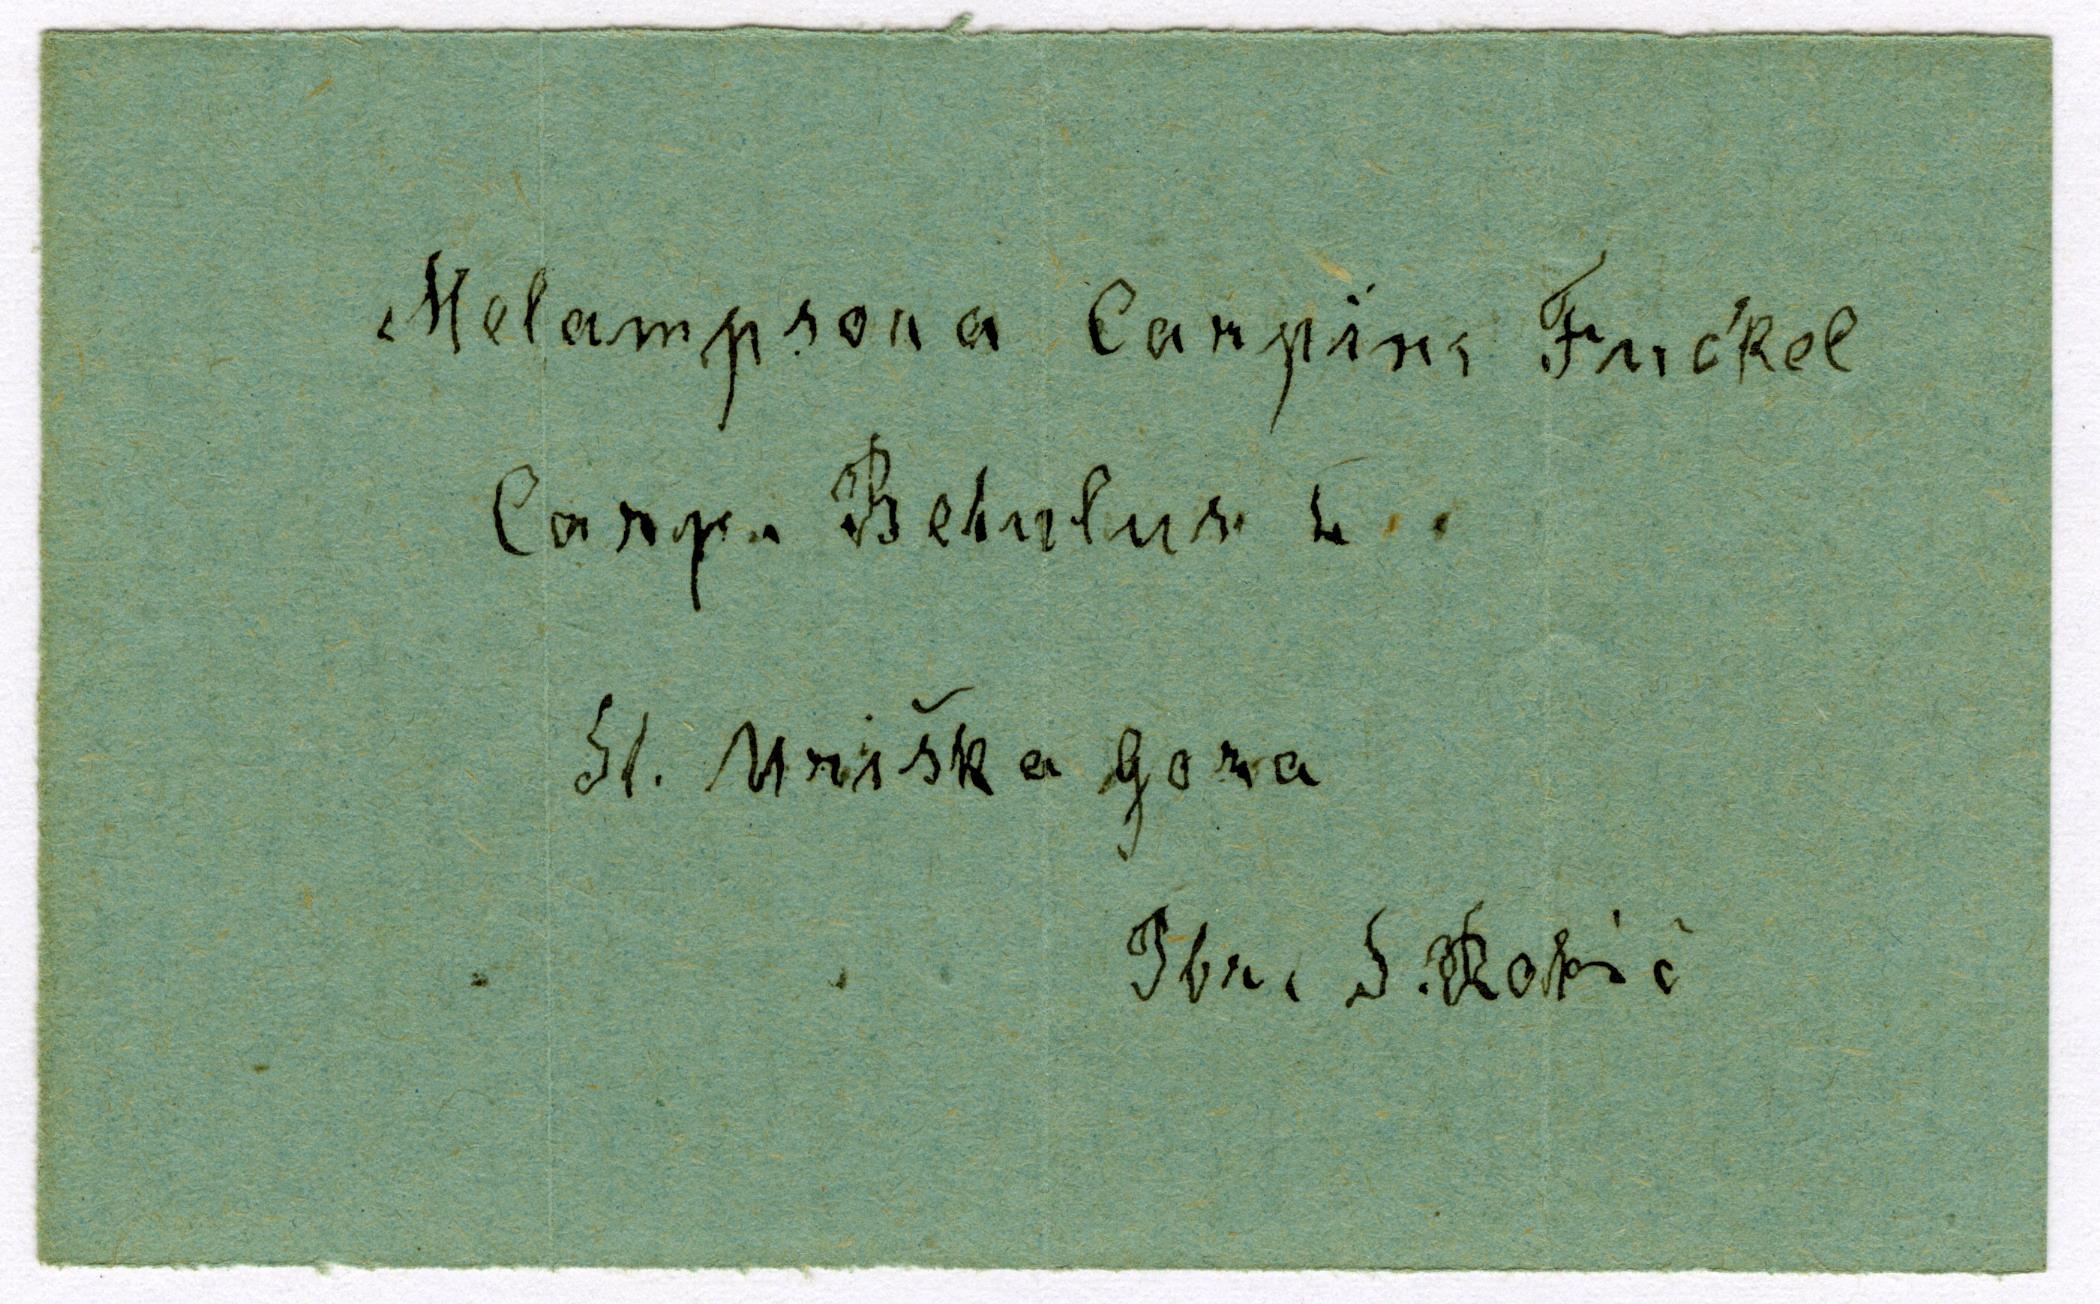 Melampsora Carpini Fuckel
Carp. Betulus L.
St. Uriška gora
Zbr. S. Robič